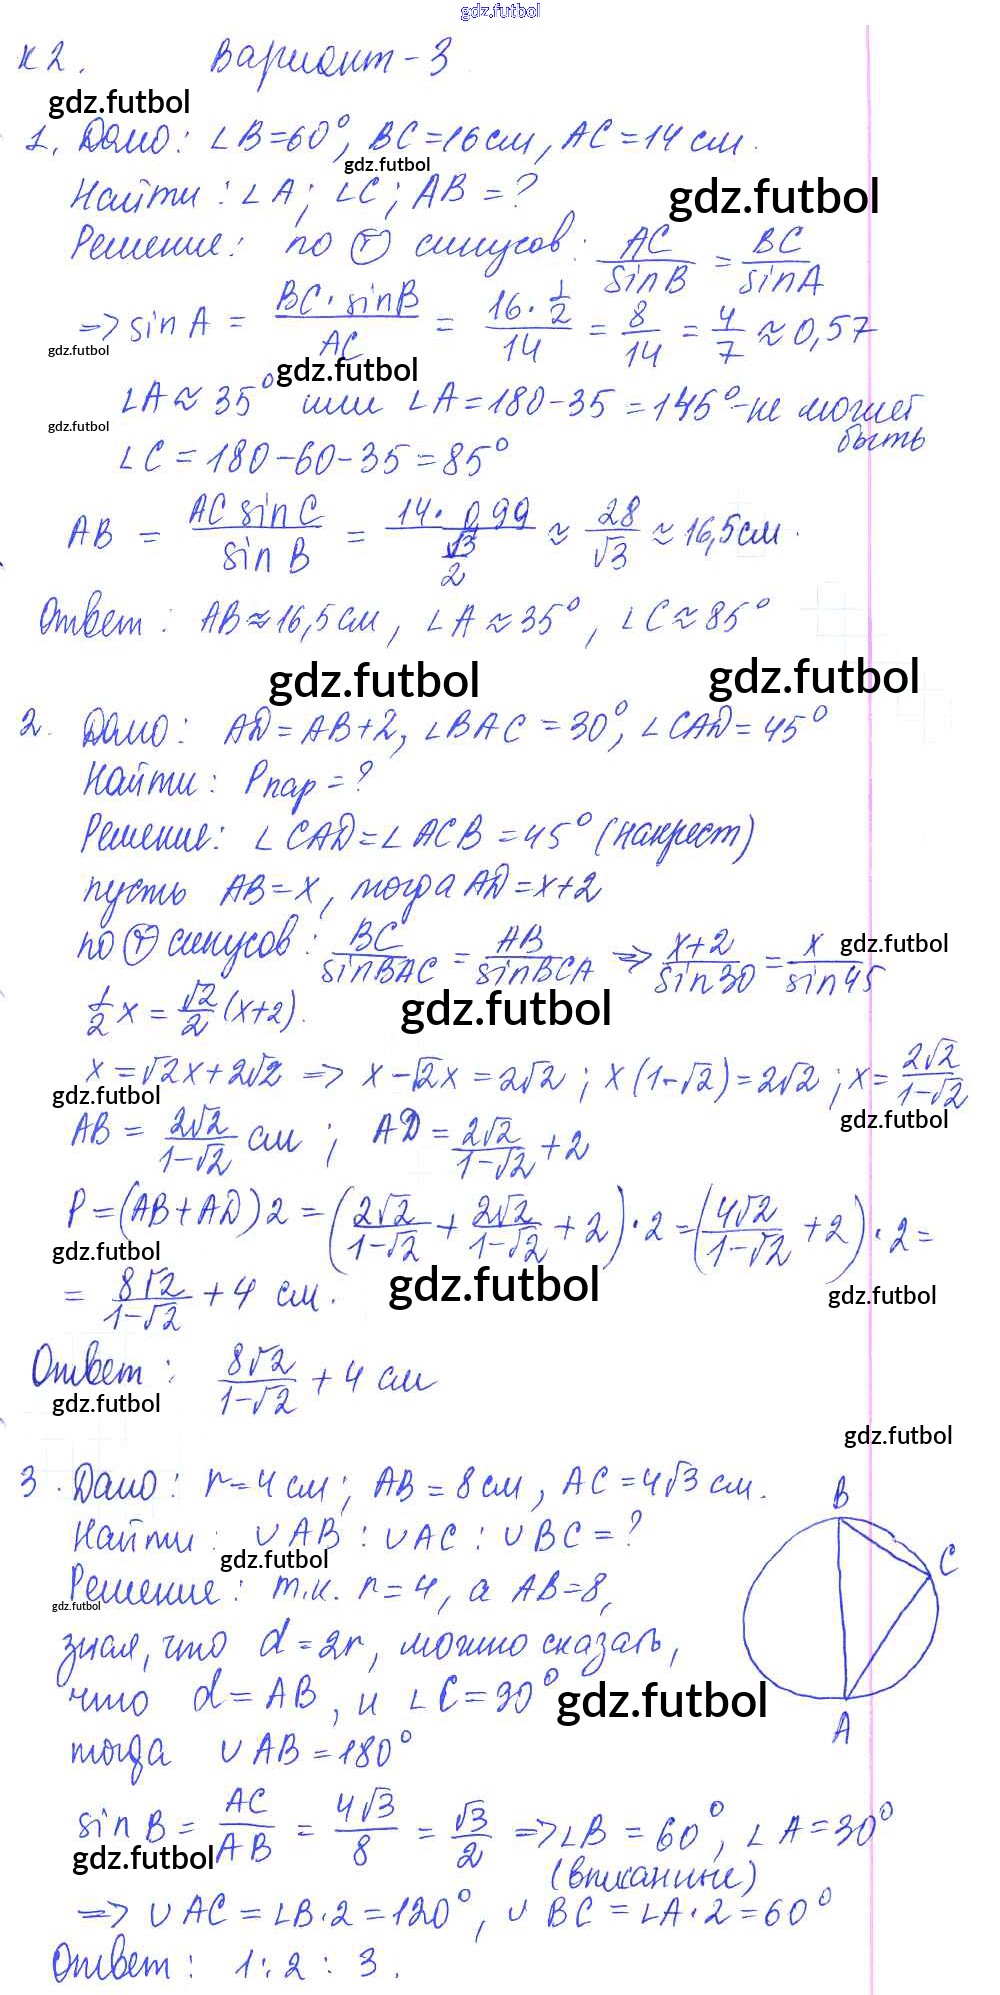 gdz.futbol
К 2. Вариант - 3
gdz.futbol
1. Дано: ∠B=60°, BC=16 см, AC=14 см.
gdz.futbol
Найти: ∠A; ∠C; AB = ?
gdz.futbol
Решение: по (т) синусов: AC/sinB = BC/sinA
=> sin A = BC·sinB/AC = 16·1/2/14 = 8/14 = 4/7 ≈ 0,57
gdz.futbol
gdz.futbol
∠A ≈ 35° или ∠A = 180-35 = 145° - не может быть
gdz.futbol
∠C = 180-60-35 = 85°
AB = AC sin C/sin B = 14·0,99/(√3/2) ≈ 28/√3 ≈ 16,5 см.
Ответ: AB ≈ 16,5 см, ∠A ≈ 35°, ∠C ≈ 85°
gdz.futbol
gdz.futbol
2. Дано: AD = AB+2, ∠BAC = 30°, ∠CAD = 45°
Найти: Pпар = ?
Решение: ∠CAD = ∠ACB = 45° (накрест)
пусть AB = x, тогда AD = x+2
по (т) синусов: BC/sinBAC = AB/sinBCA => x+2/sin30 = x/sin45
gdz.futbol
1/2 x = √2/2 (x+2).
gdz.futbol
x = √2x + 2√2 => x - √2x = 2√2; x(1-√2) = 2√2; x = 2√2/1-√2
gdz.futbol
gdz.futbol
AB = 2√2/1-√2 см; AD = 2√2/1-√2 + 2
P = (AB+AD)2 = (2√2/1-√2 + 2√2/1-√2 + 2)·2 = (4√2/1-√2 + 2)·2 =
gdz.futbol
gdz.futbol
gdz.futbol
= 8√2/1-√2 + 4 см.
Ответ: 8√2/1-√2 + 4 см
gdz.futbol
gdz.futbol
3. Дано: r=4 см; AB = 8 см, AC = 4√3 см.
Найти: ∪AB : ∪AC : ∪BC = ?
gdz.futbol
Решение: т.к. r=4, а AB=8,
gdz.futbol
зная, что d = 2r, можно сказать,
что d = AB, и ∠C = 90°
gdz.futbol
тогда ∪AB = 180°
B
C
A
sin B = AC/AB = 4√3/8 = √3/2 => ∠B = 60°, ∠A = 30°
gdz.futbol
(вписанные)
=> ∪AC = ∠B·2 = 120°, ∪BC = ∠A·2 = 60°
Ответ: 1 : 2 : 3.